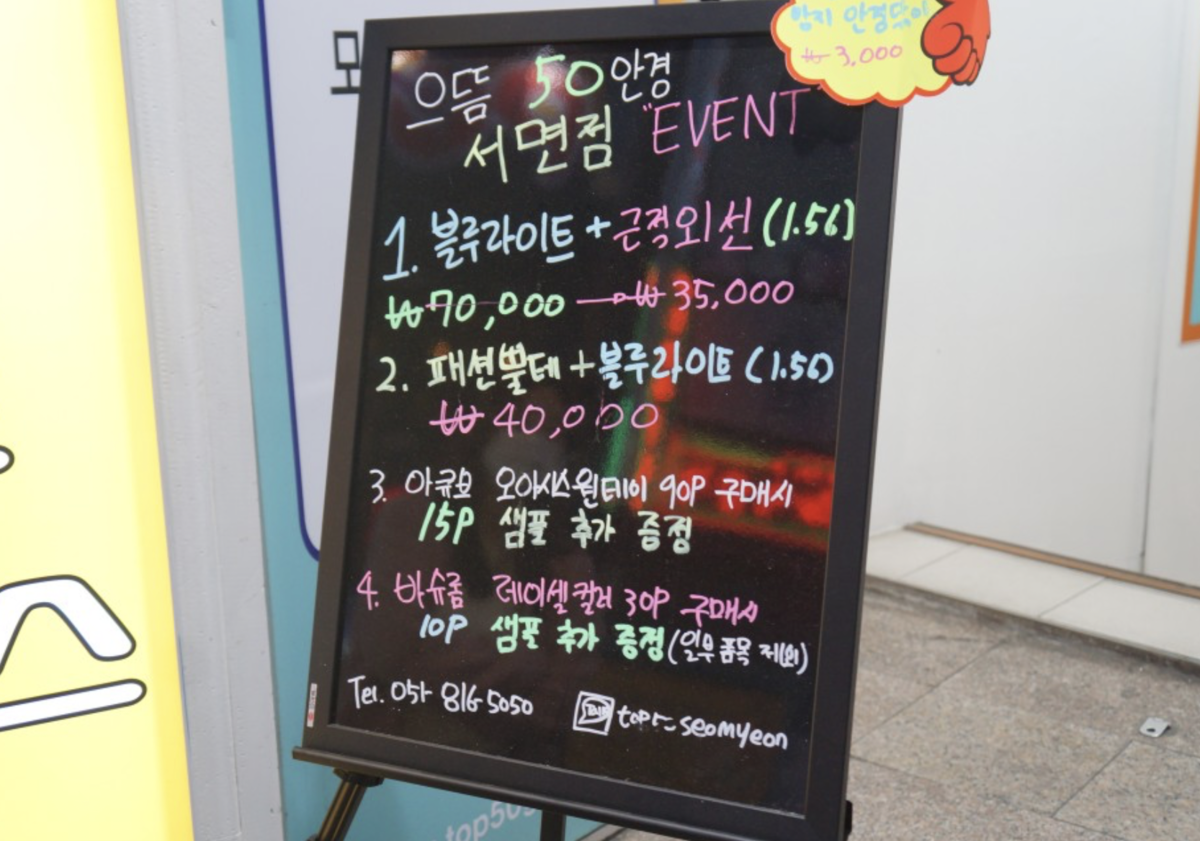 김서림방지 안경닦이
₩ 3,000
으뜸 50 안경
서면점 "EVENT"
1. 블루라이트 + 근적외선 (1.56)
₩70,000 → ₩35,000
2. 패션뿔테 + 블루라이트 (1.56)
₩40,000
3. 아큐브 오아시스원데이 90P 구매시
15P 샘플 추가 증정
4. 바슈롬 레이셀컬러 30P 구매시
10P 샘플 추가 증정 (일부 품목 제외)
Tel. 051-816-5050
top50